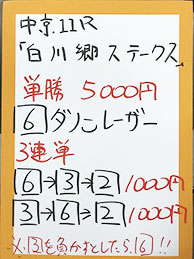 中京11R
「白川郷ステークス」
単勝 5000円
6 ダノンレーザー
3連単
6→3→2 1000円
3→6→2 1000円
※3を負かすとしたら、6!!